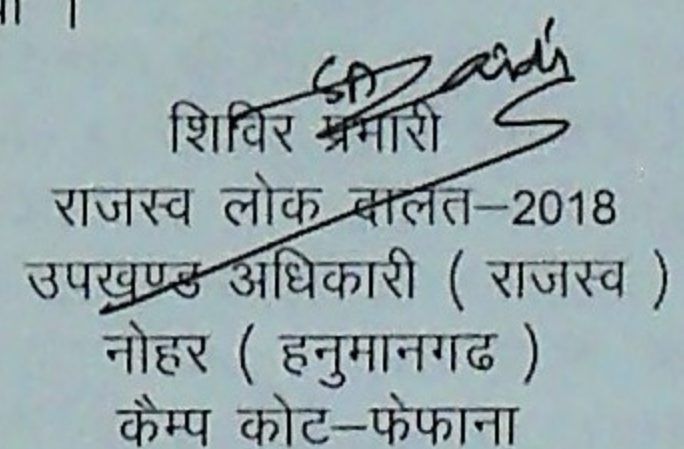 शिविर प्रभारी
राजस्व लोक दालत–2018
उपखण्ड अधिकारी ( राजस्व )
नोहर ( हनुमानगढ )
कैम्प कोट–फेफाना